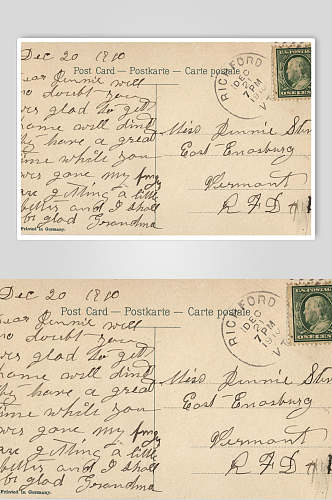 Dec 20 1910
Post Card — Postkarte — Carte postale
Dear Jennie will
no doubt you
was glad to get
home will dint
they have a great
time while you
was gone my
are getting a little
better and I shall
be glad Grandma
Printed in Germany.
RICHFORD
DEC
7 PM
VT
U.S. POSTAGE
ONE CENT
Miss Jennie
East Enosburg
Vermont
R F D # 1
Dec 20 1910
Post Card — Postkarte — Carte postale
Dear Jennie will
no doubt you
was glad to get
home will dint
they have a great
time while you
was gone my
are getting a little
better and I shall
be glad Grandma
Printed in Germany.
RICHFORD
DEC
7 PM
VT
U.S. POSTAGE
ONE CENT
Miss Jennie
East Enosburg
Vermont
R F D #